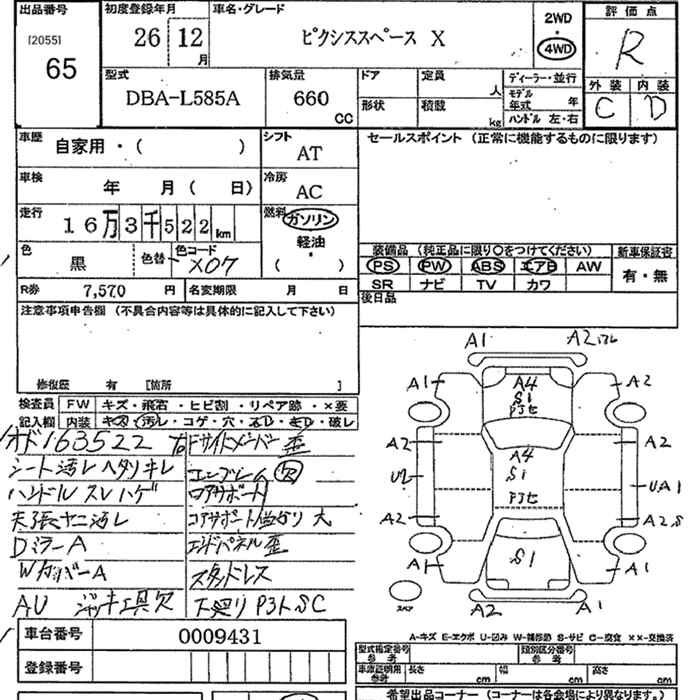 出品番号
[2055]
65
初度登録年月
26 12月
車名・グレード
ピクシススペース X
2WD
4WD
評価点
R
型式
DBA-L585A
排気量
660 CC
ドア
定員 人
形状
積載 kg
ディーラー・並行
モデル年式 年
ハンドル 左・右
外装
内装
C
D
車歴
自家用・( )
シフト
AT
車検
年 月( 日)
冷房
AC
走行
16万3千522km
燃料
ガソリン
軽油
( )
色
黒
色替
色コード
X07
セールスポイント (正常に機能するものに限ります)
装備品 (純正品に限り○をつけてください)
PS PW ABS エアB AW
SR ナビ TV カワ
新車保証書
有・無
R券 7,570 円
名変期限 月 日
後日品
注意事項申告欄 (不具合内容等は具体的に記入して下さい)
修復歴 有 [箇所 ]
検査員記入欄
FW キズ・飛石・ヒビ割・リペア跡・×要
内装 キズ・汚レ・コゲ・穴・スレ・キレ・破レ
オド163522
右Fサイドメンバー歪
シート汚レヘタリキレ
エンブレム欠
ハンドルスレハゲ
ロアサポート
天張ヤニ汚レ
コアサポート曲ガリ大
DミラーA
エンドパネル歪
WカバーA
スタッドレス
AU ジャッキ工具欠
下廻りP3トSC
A1
A2
A1
A4
S1
A2
A2
A2
U2
A4
S1
UA1
A2
A2S
A1
S1
A1
スペア
A2
A1
車台番号 0009431
登録番号
A-キズ E-エクボ U-凹み W-補修跡 S-サビ C-腐食 ××-交換済
型式指定番号 参考
類別区分番号 参考
車庫証明用 参考
長さ cm
幅 cm
高さ cm
希望出品コーナー (コーナーは各会場により異なります。)